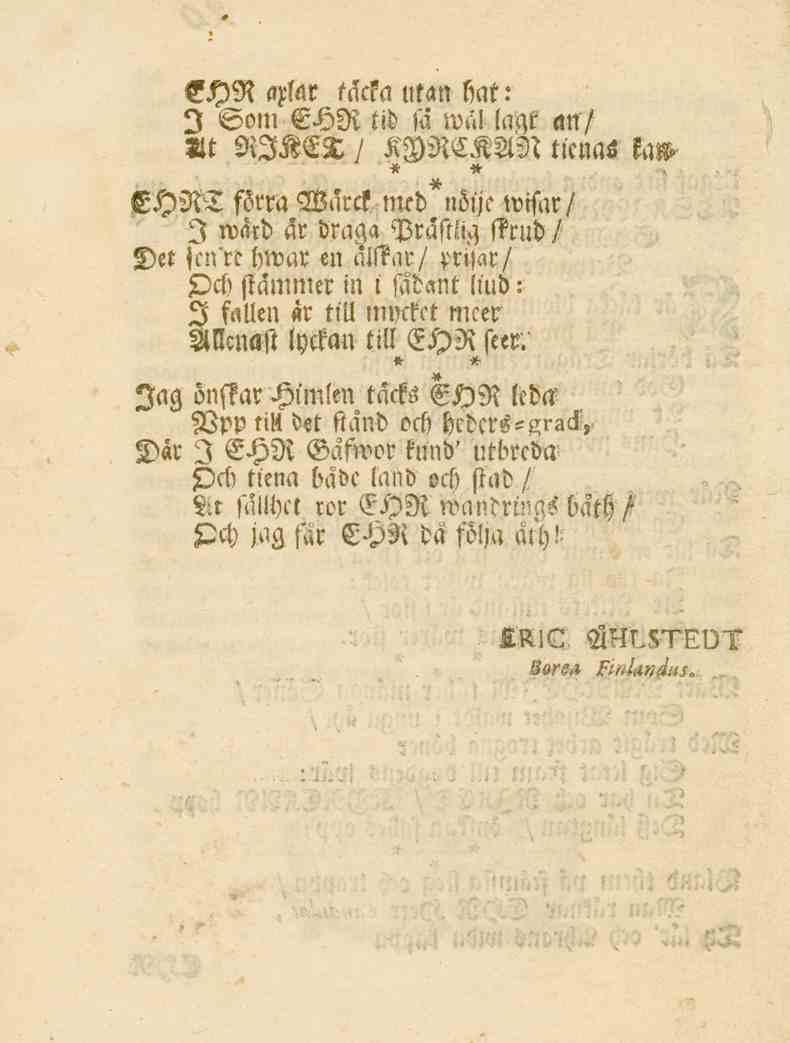 EHR axlar täcka utan hat:
J Som EHR tid så wäl lagt an/
At RIKET / KYRCKAN tienas kan.
* *
*
EHRT förra Wärck med nöije wisar/
J wärd är draga Prästlig skrud/
Det sen're hwar en älskar/ prisar/
Och stämmer in i sådant liud:
J fallen är till mycket meer
Allenast lyckan till EHR seer.
* *
*
Jag önskar Himlen täcks EHR leda
Upp till det stånd och heders-grad,
Där J EHR Gåfwor kund' utbreda
Och tiena både land och stad /
At sällhet ror EHR wandrings båth /
Och jag får EHR då följa åth!
ERIC ÅHLSTEDT
Borea Finlandus.